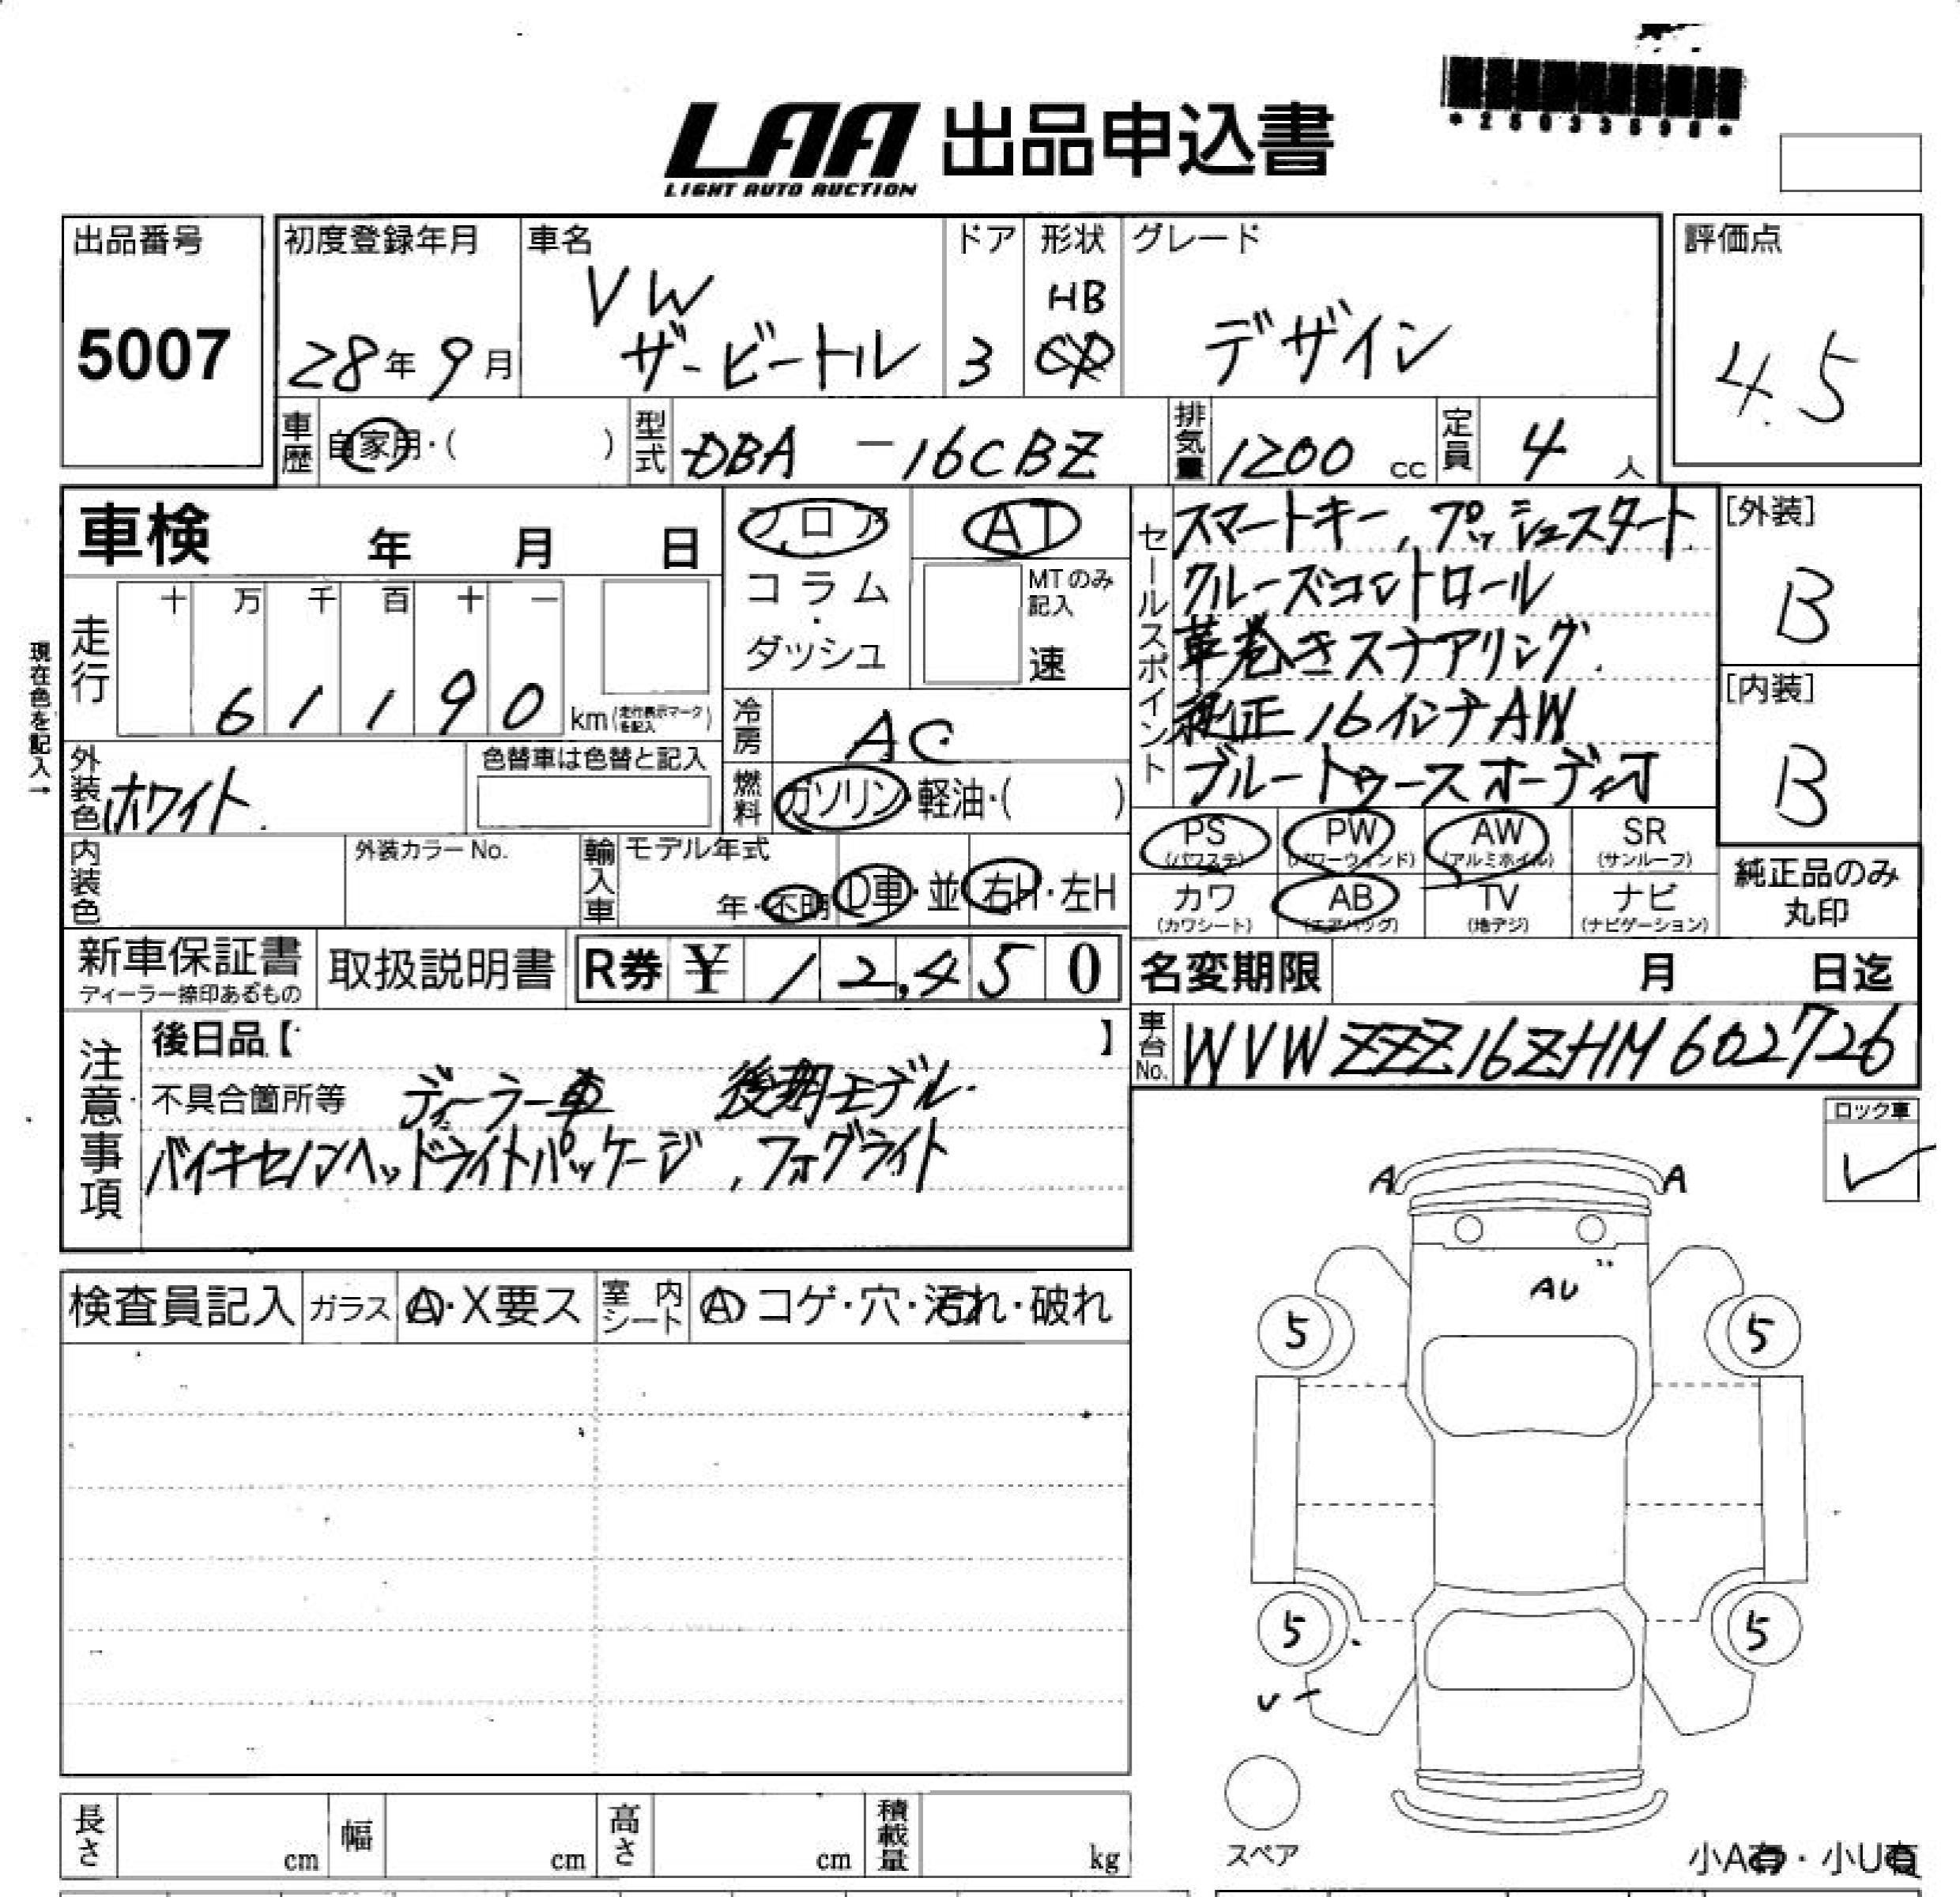 *25033598*
LAA 出品申込書
LIGHT AUTO AUCTION
出品番号
5007
初度登録年月
28年9月
車名
VW
ザ・ビートル
ドア
3
形状
HB
グレード
デザイン
評価点
4.5
車歴
自家用・( )
型式
DBA -16CBZ
排気量
1200 cc
定員
4人
車検 年 月 日
走行
十 万 千 百 十 一
6 1 1 9 0 km(走行表示マークを記入)
現在色を記入→
外装色
ホワイト
色替車は色替と記入
内装色
外装カラーNo.
フロア
コラム
・
ダッシュ
AT
MTのみ記入
速
冷房
AC
燃料
ガソリン・軽油・( )
輸入車
モデル年式
年・不明
D車・並
右H・左H
セールスポイント
スマートキー, プッシュスタート
クルーズコントロール
革巻きステアリング
純正16インチAW
ブルートゥースオーディオ
[外装]
B
[内装]
B
PS
(パワステ)
PW
(パワーウィンド)
AW
(アルミホイル)
SR
(サンルーフ)
カワ
(カワシート)
AB
(エアバッグ)
TV
(地デジ)
ナビ
(ナビゲーション)
純正品のみ
丸印
新車保証書
ディーラー捺印あるもの
取扱説明書
R券 ¥ 12,450
名変期限 月 日迄
車台No.
WVWZZZ16ZHM602726
注意事項
後日品【 】
不具合箇所等 ディーラー車 後期モデル
バイキセノンヘッドライトパッケージ, フォグライト
ロック車
A A
AU
5 5
5 5
スペア
小A有・小U有
検査員記入
ガラス
A・X要ス
室内シート
A コゲ・穴・汚れ・破れ
長さ cm
幅 cm
高さ cm
積載量 kg